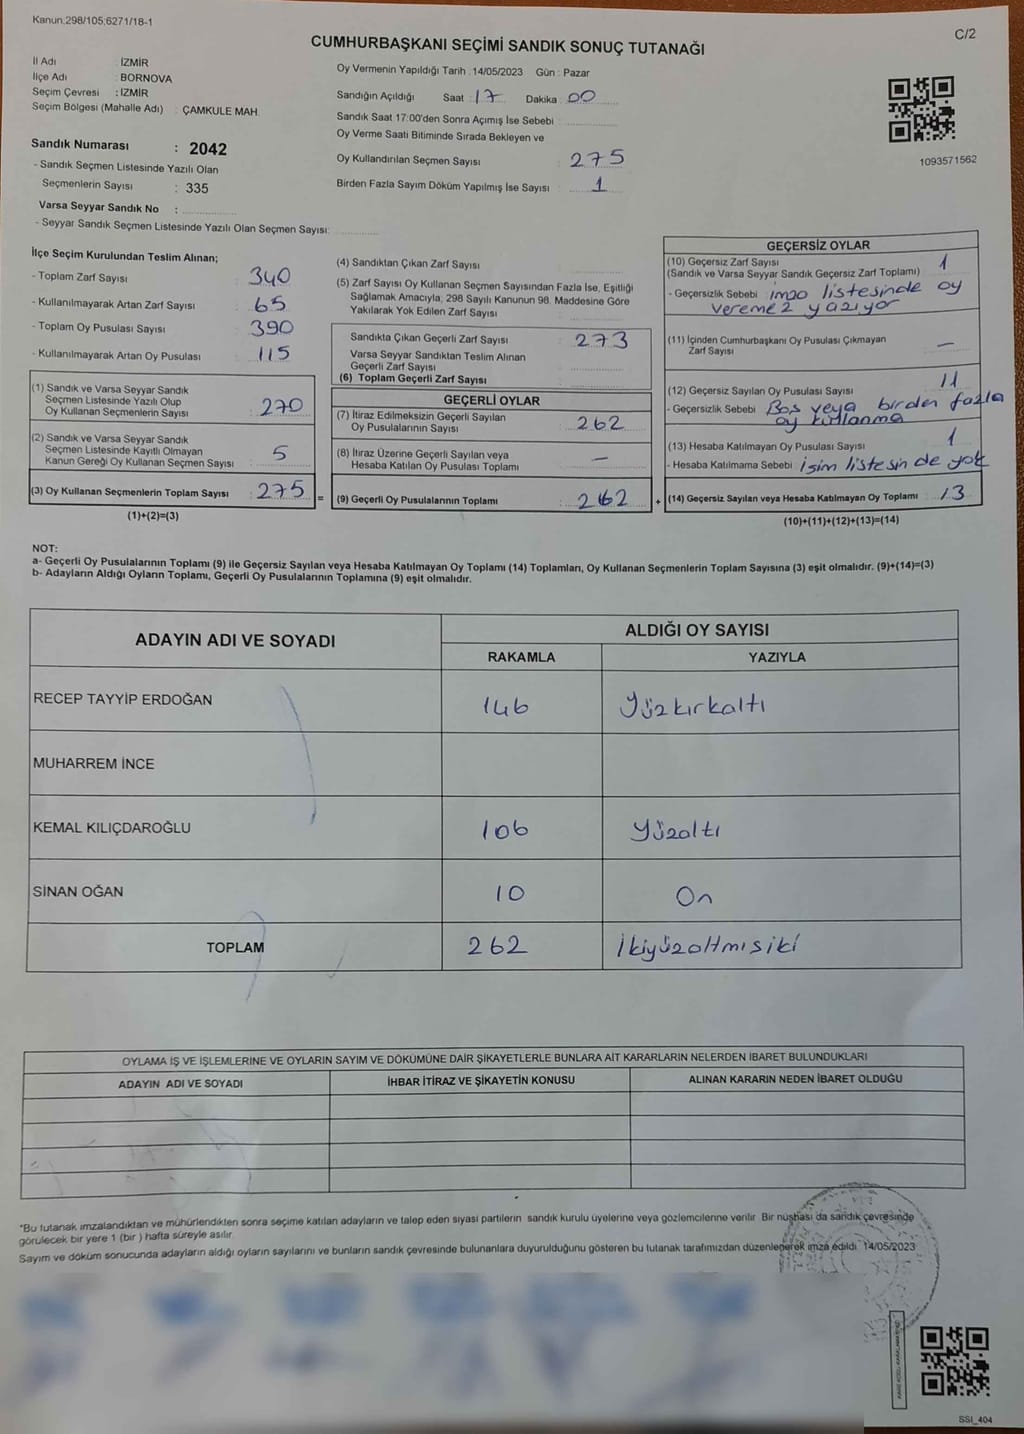 Kanun.298/105;6271/18-1
C/2
CUMHURBAŞKANI SEÇİMİ SANDIK SONUÇ TUTANAĞI
İl Adı : İZMİR
İlçe Adı : BORNOVA
Seçim Çevresi : İZMİR
Seçim Bölgesi (Mahalle Adı) : ÇAMKULE MAH.
Oy Vermenin Yapıldığı Tarih : 14/05/2023 Gün : Pazar
Sandığın Açıldığı Saat : 17 Dakika : 00
Sandık Saat 17:00'den Sonra Açımış İse Sebebi :
Oy Verme Saati Bitiminde Sırada Bekleyen ve
Oy Kullandırılan Seçmen Sayısı : 275
Birden Fazla Sayım Döküm Yapılmış İse Sayısı : 1
1093571562
Sandık Numarası : 2042
- Sandık Seçmen Listesinde Yazılı Olan
Seçmenlerin Sayısı : 335
Varsa Seyyar Sandık No :
- Seyyar Sandık Seçmen Listesinde Yazılı Olan Seçmen Sayısı:
İlçe Seçim Kurulundan Teslim Alınan;
- Toplam Zarf Sayısı : 340
- Kullanılmayarak Artan Zarf Sayısı : 65
- Toplam Oy Pusulası Sayısı : 390
- Kullanılmayarak Artan Oy Pusulası : 115
(1) Sandık ve Varsa Seyyar Sandık
Seçmen Listesinde Yazılı Olup
Oy Kullanan Seçmenlerin Sayısı : 270
(2) Sandık ve Varsa Seyyar Sandık
Seçmen Listesinde Kayıtlı Olmayan
Kanun Gereği Oy Kullanan Seçmen Sayısı : 5
(3) Oy Kullanan Seçmenlerin Toplam Sayısı : 275 =
(1)+(2)=(3)
(4) Sandıktan Çıkan Zarf Sayısı :
(5) Zarf Sayısı Oy Kullanan Seçmen Sayısından Fazla İse, Eşitliği
Sağlamak Amacıyla, 298 Sayılı Kanunun 98. Maddesine Göre
Yakılarak Yok Edilen Zarf Sayısı :
Sandıkta Çıkan Geçerli Zarf Sayısı : 273
Varsa Seyyar Sandıktan Teslim Alınan
Geçerli Zarf Sayısı :
(6) Toplam Geçerli Zarf Sayısı :
GEÇERLİ OYLAR
(7) İtiraz Edilmeksizin Geçerli Sayılan
Oy Pusulalarının Sayısı : 262
(8) İtiraz Üzerine Geçerli Sayılan veya
Hesaba Katılan Oy Pusulası Toplamı : –
(9) Geçerli Oy Pusulalarının Toplamı : 262 +
GEÇERSİZ OYLAR
(10) Geçersiz Zarf Sayısı 1
(Sandık ve Varsa Seyyar Sandık Geçersiz Zarf Toplamı)
- Geçersizlik Sebebi : imza listesinde oy
veremez yazıyor
(11) İçinden Cumhurbaşkanı Oy Pusulası Çıkmayan
Zarf Sayısı : –
(12) Geçersiz Sayılan Oy Pusulası Sayısı : 11
- Geçersizlik Sebebi : Boş veya birden fazla
oy kullanma
(13) Hesaba Katılmayan Oy Pusulası Sayısı : 1
- Hesaba Katılmama Sebebi : isim listesin de yok
(14) Geçersiz Sayılan veya Hesaba Katılmayan Oy Toplamı : 13
(10)+(11)+(12)+(13)=(14)
NOT:
a- Geçerli Oy Pusulalarının Toplamı (9) ile Geçersiz Sayılan veya Hesaba Katılmayan Oy Toplamı (14) Toplamları, Oy Kullanan Seçmenlerin Toplam Sayısına (3) eşit olmalıdır. (9)+(14)=(3)
b- Adayların Aldığı Oyların Toplamı, Geçerli Oy Pusulalarının Toplamına (9) eşit olmalıdır.
ADAYIN ADI VE SOYADI
ALDIĞI OY SAYISI
RAKAMLA YAZIYLA
RECEP TAYYİP ERDOĞAN 146 Yüzkırkaltı
MUHARREM İNCE
KEMAL KILIÇDAROĞLU 106 Yüzaltı
SİNAN OĞAN 10 On
TOPLAM 262 İkiyüzaltmışiki
OYLAMA İŞ VE İŞLEMLERİNE VE OYLARIN SAYIM VE DÖKÜMÜNE DAİR ŞİKAYETLERLE BUNLARA AİT KARARLARIN NELERDEN İBARET BULUNDUKLARI
ADAYIN ADI VE SOYADI İHBAR İTİRAZ VE ŞİKAYETİN KONUSU ALINAN KARARIN NEDEN İBARET OLDUĞU
*Bu tutanak imzalandıktan ve mühürlendikten sonra seçime katılan adayların ve talep eden siyasi partilerin sandık kurulu üyelerine veya gözlemcilerine verilir. Bir nüshası da sandık çevresinde
görülecek bir yere 1 (bir ) hafta süreyle asılır.
Sayım ve döküm sonucunda adayların aldığı oyların sayılarını ve bunların sandık çevresinde bulunanlara duyurulduğunu gösteren bu tutanak tarafımızdan düzenlenerek imza edildi. 14/05/2023
SSİ_404